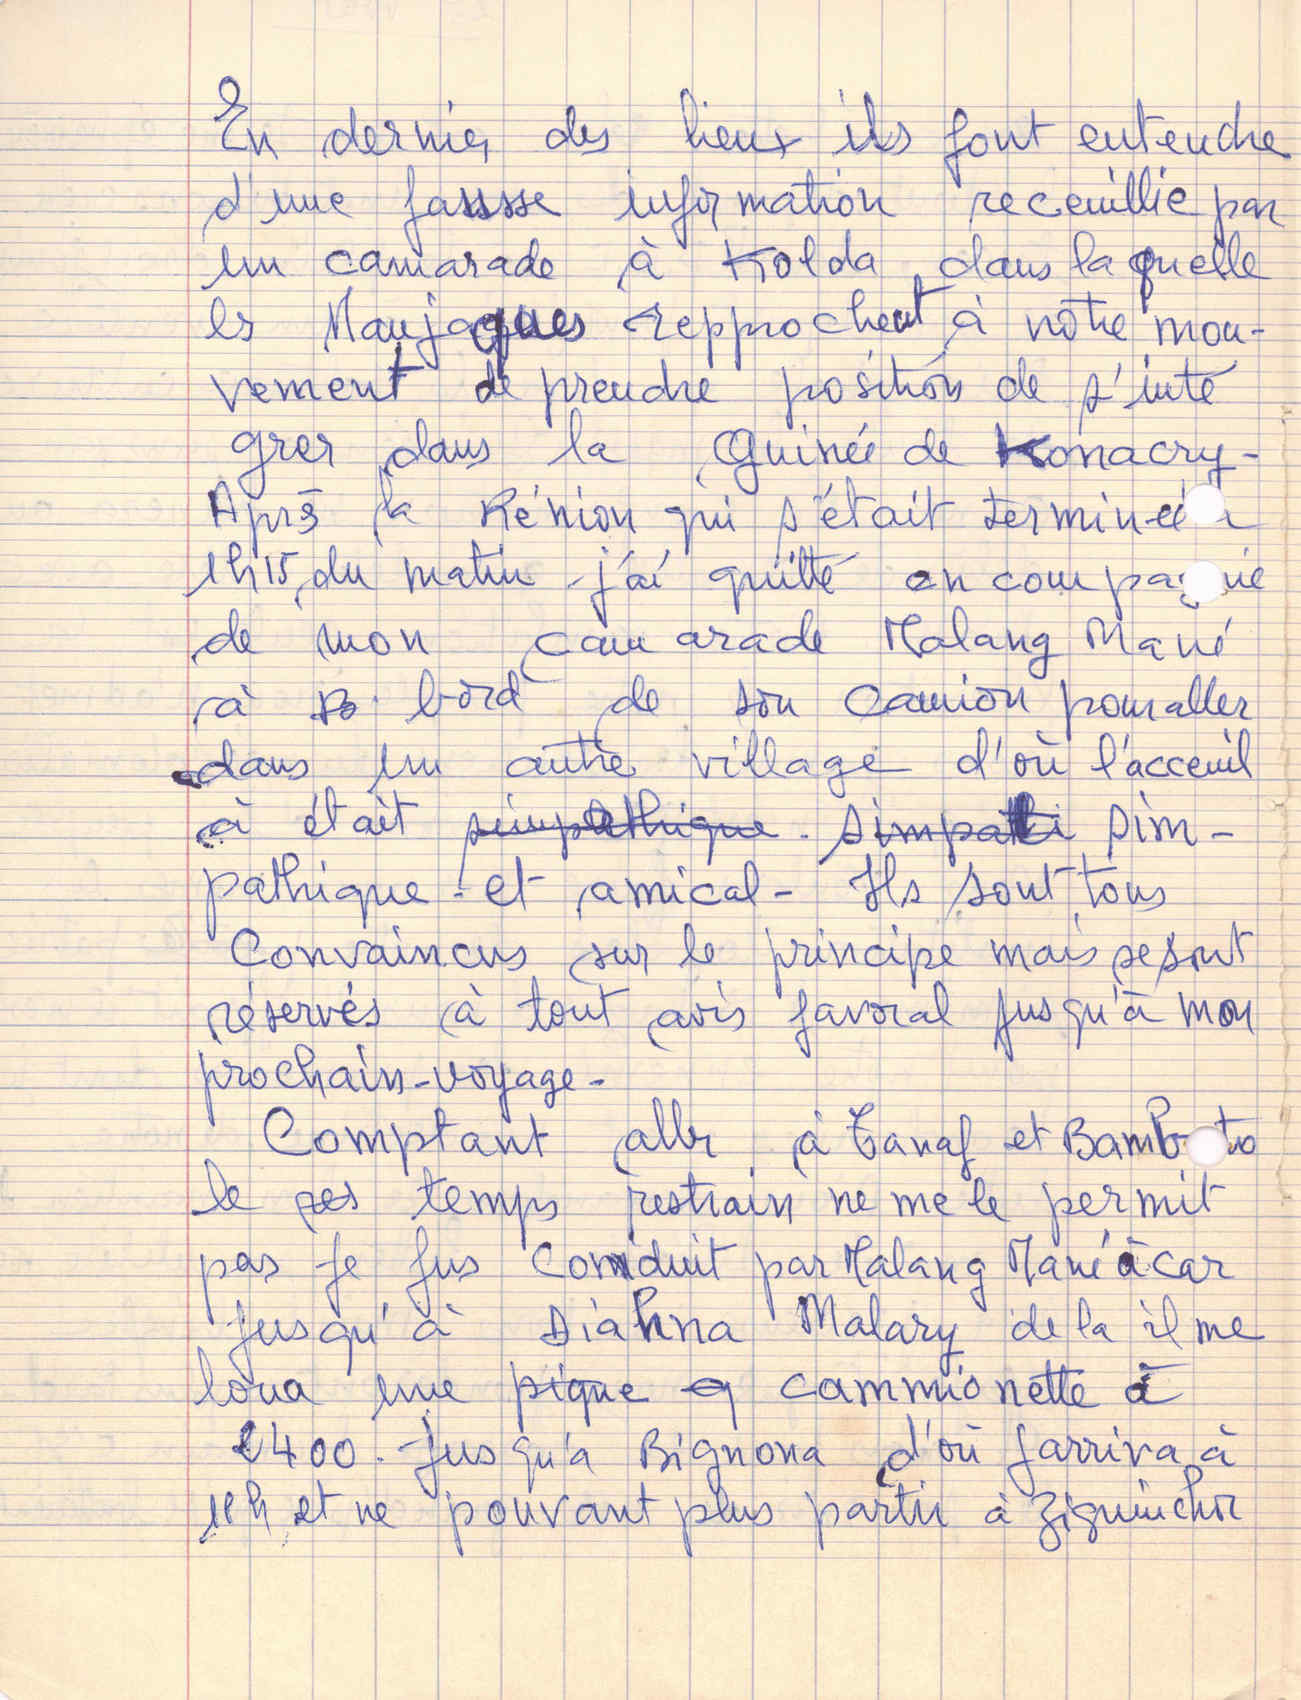 En dernier des lieux ils font entendre
d'une fausse information receuillie par
un camarade à Kolda dans laquelle
les Manjaques repprochent à notre mou-
vement de prendre position de s'inté
grer dans la Guinée de Konacry -
Après la Rénion qui s'était terminée à
1h15 du matin j'ai quitté en compagnie
de mon camarade Malang Mané
à bord de son camion pour aller
dans un autre village d'où l'acceuil
à était simpathique. simpati sim-
pathique et amical - Ils sont tous
Convaincus sur le principe mais se sont
réservés à tout avis favoral jusqu'à mon
prochain - voyage -
Comptant aller à Tanaf et Bambato
le temps restrain ne me le permit
pas je fus conduit par Malang Mané à car
jusqu'à Diahna Malary de la il me
loua une pique cammionette à
2400. jusqu'a Bignona d'où j'arriva à
11h et ne pouvant plus partir à Ziguinchor